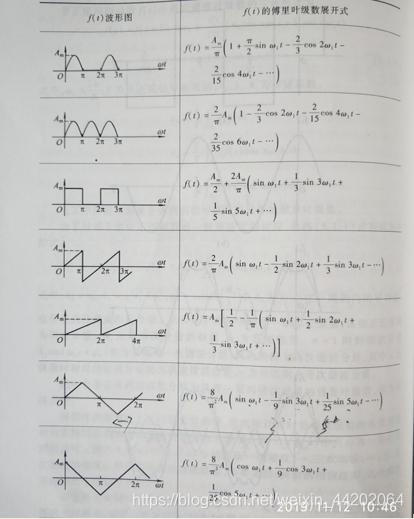 f(t)波形图
f(t)的傅里叶级数展开式
A_m
O π 2π 3π ωt
f(t)=A_m/π(1+π/2 sin ω₁t-2/3 cos 2ω₁t-
2/15 cos 4ω₁t-⋯)
A_m
O π 2π 3π ωt
f(t)=2/π A_m(1-2/3 cos 2ω₁t-2/15 cos 4ω₁t-
2/35 cos 6ω₁t-⋯)
A_m
O π 2π 3π ωt
f(t)=A_m/2+2A_m/π(sin ω₁t+1/3 sin 3ω₁t+
1/5 sin 5ω₁t+⋯)
A_m
O π 2π 3π ωt
f(t)=2/π A_m(sin ω₁t-1/2 sin 2ω₁t+1/3 sin 3ω₁t-⋯)
A_m
O 2π 4π ωt
f(t)=A_m[1/2-1/π(sin ω₁t+1/2 sin 2ω₁t+
1/3 sin 3ω₁t+⋯)]
A_m
O π 2π ωt
f(t)=8/π² A_m(sin ω₁t-1/9 sin 3ω₁t+1/25 sin 5ω₁t-⋯)
A_m
O π 2π ωt
f(t)=8/π² A_m(cos ω₁t+1/9 cos 3ω₁t+
1/25 cos 5ω₁t+⋯)
https://blog.csdn.net/weixin_44202064
2019/11/12 10:46